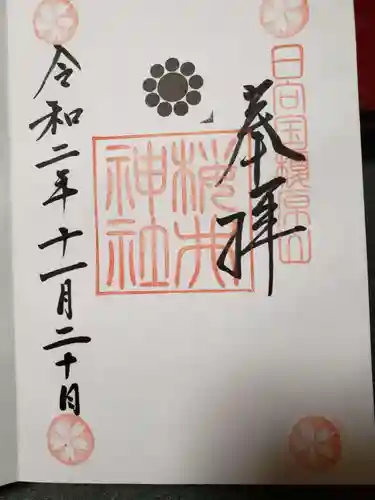 日向国
奉拝
神社
令和二年十一月二十日